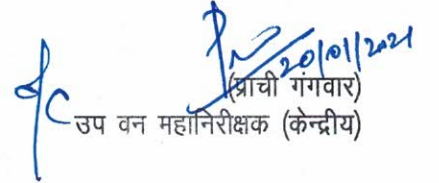 20/01/2021
(प्राची गंगवार)
उप वन महानिरीक्षक (केन्द्रीय)